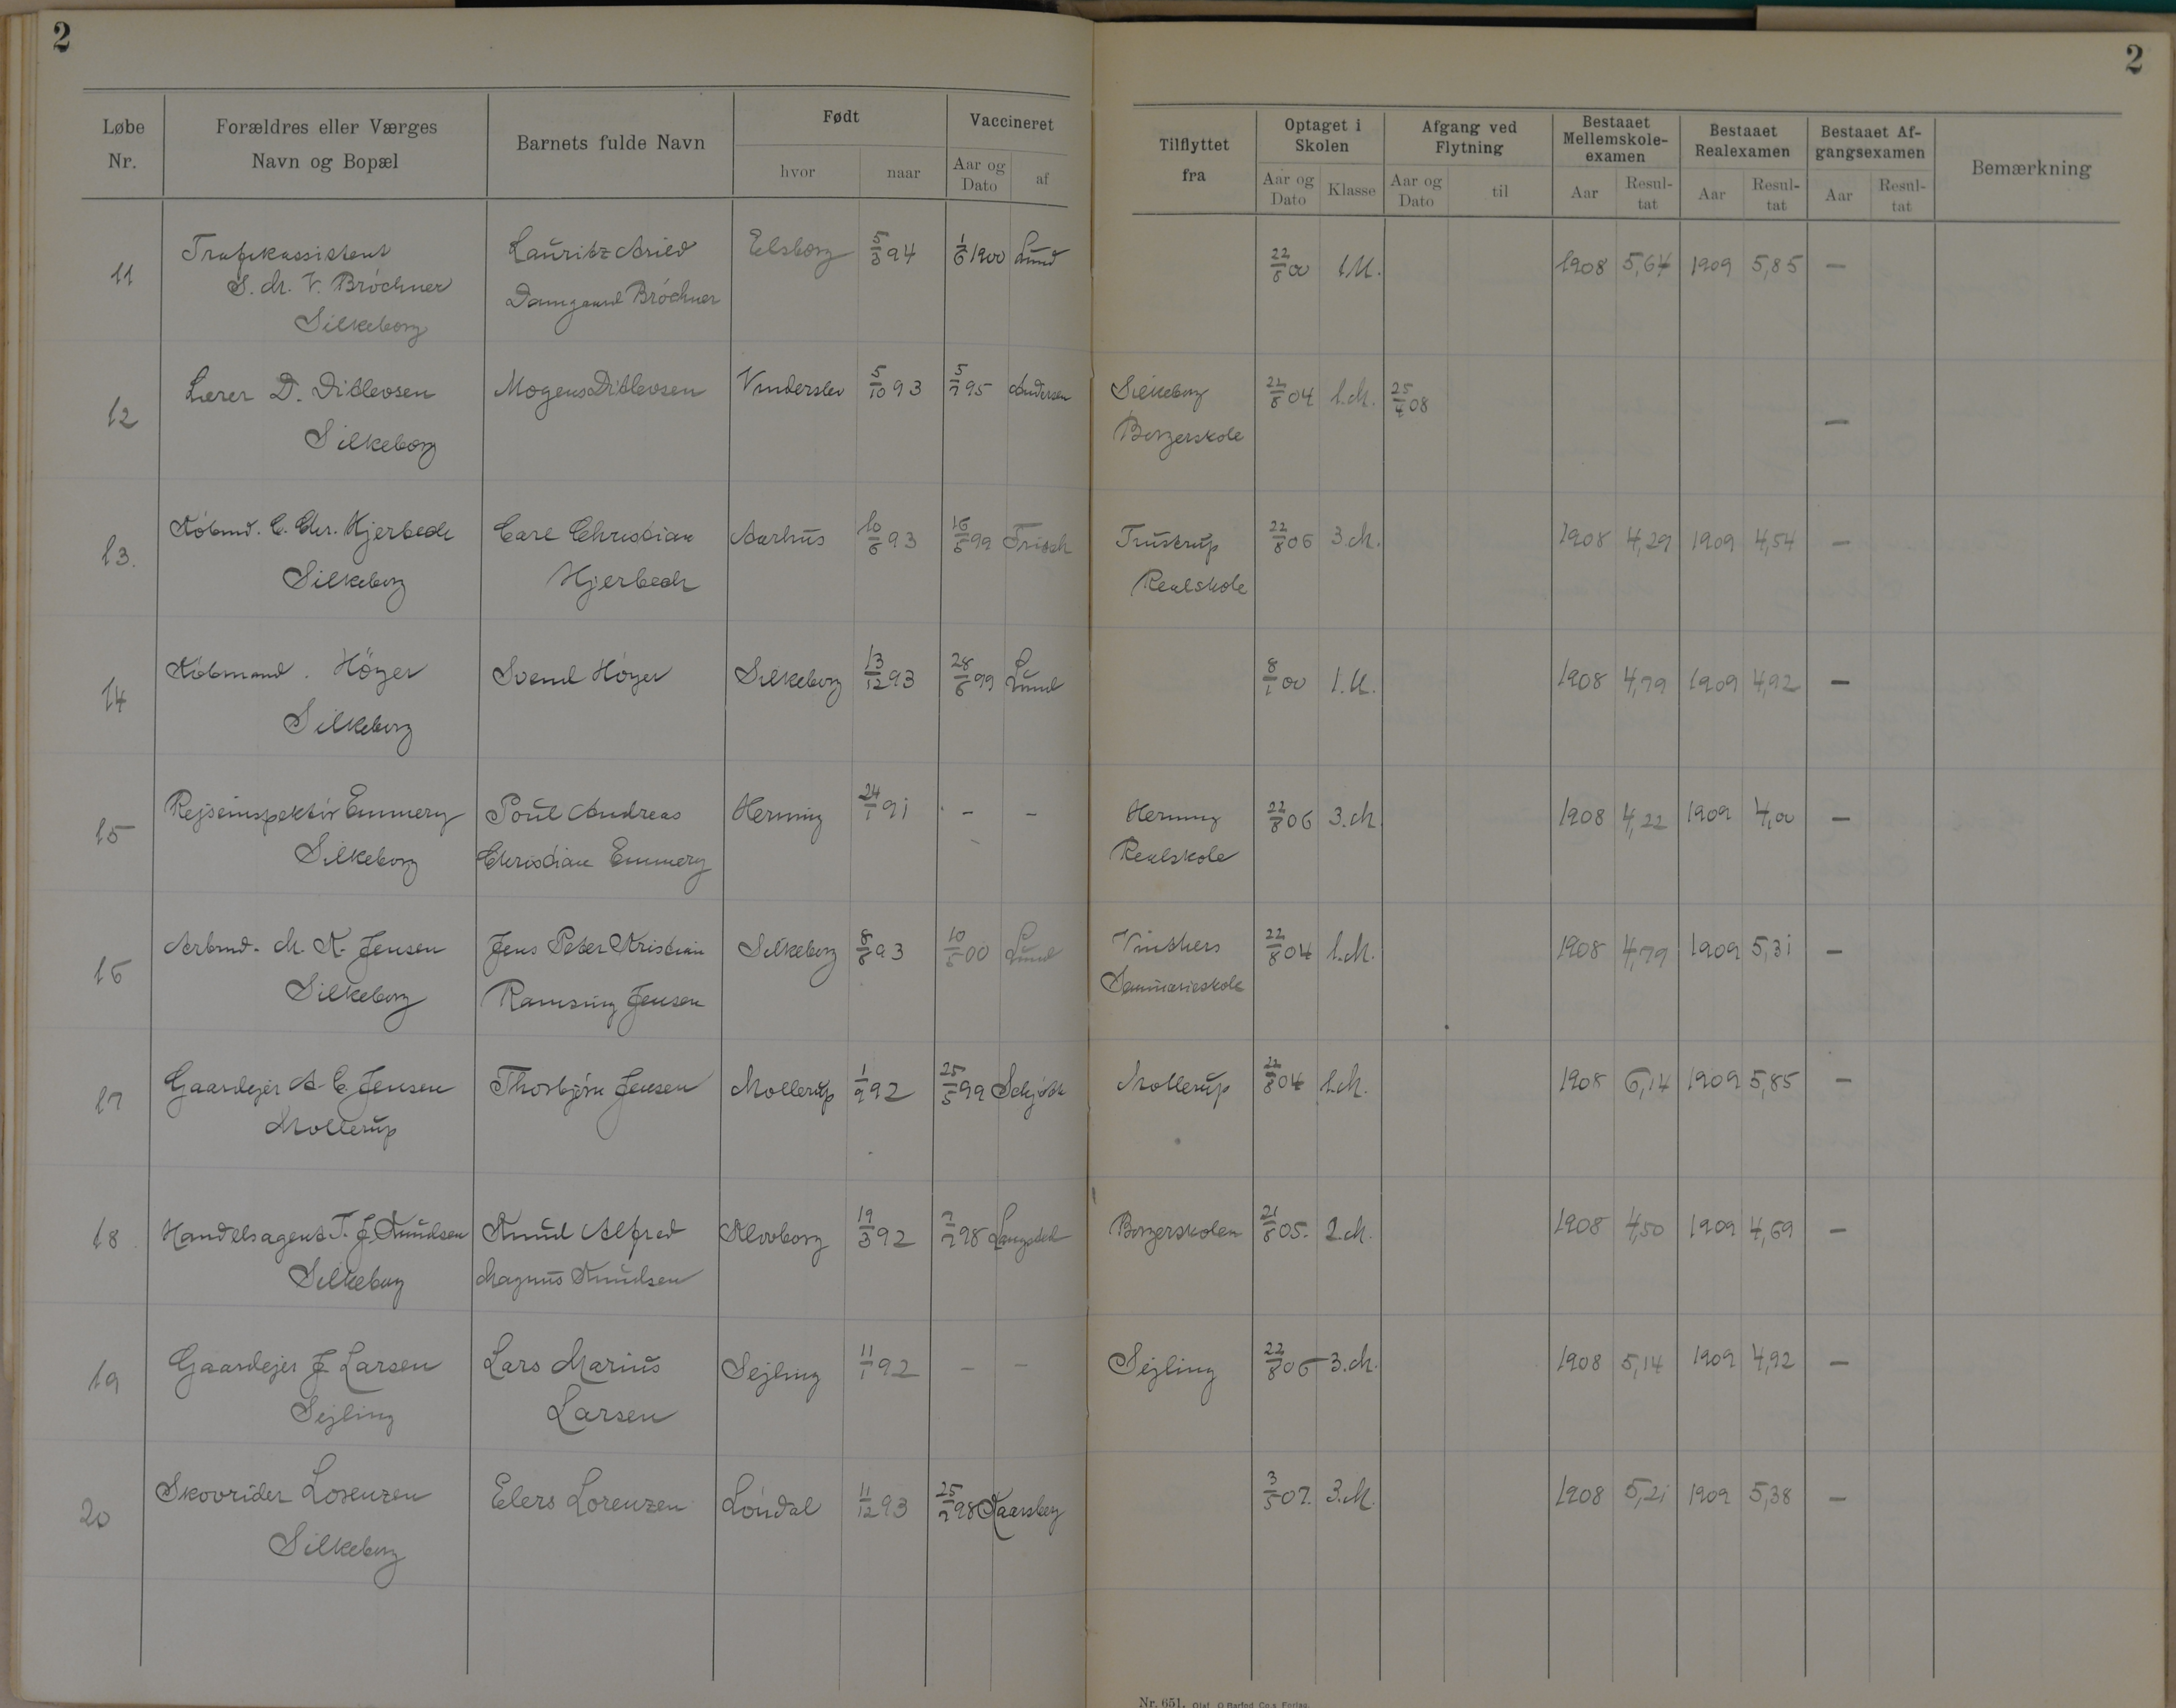 2
2
Løbe Nr. Forældres eller Værges Navn og Bopæl Barnets fulde Navn Født hvor naar Vaccineret Aar og Dato af Tilflyttet fra Optaget i Skolen Aar og Dato Klasse Afgang ved Flytning Aar og Dato til Bestaaet Mellemskole-examen Aar Resul-tat Bestaaet Realexamen Aar Resul-tat Bestaaet Af-gangsexamen Aar Resul-tat Bemærkning
11 Trafikassistent Lauritz Arild Elsborg 5/3 94 1/6 1900 Lund 22/8 00 1 U. 1908 5,64 1909 5,85 —
S. M. V. Bróchner Damgaard Bróchner
Silkeborg
12 Lærer D. Ditlevsen Mogens Ditlevsen Vinderslev 5/10 93 5/7 95 Andersen Silkeborg 22/8 04 1. M. 25/4 08 —
Silkeborg Borgerskole
13. Købmd. C. Chr. Hjerbeck Carl Christian Aarhus 10/6 93 16/5 99 Frisch Trustrup 22/8 06 3. M. 1908 4,29 1909 4,54 —
Silkeborg Hjerbeck Realskole
14 Købmand. Höyer Svend Höyer Silkeborg 13/12 93 28/6 99 Lund 8/1 00 1. U. 1908 4,79 1909 4,92 —
Silkeborg
15 Rejseinspektør Emmery Poul Andreas Herning 24/1 91 — — Herning 22/8 06 3. M. 1908 4,22 1909 4,00 —
Silkeborg Christian Emmery Realskole
16 Arbmd. M. K. Jensen Jens Peter Kristian Silkeborg 8/6 93 10/5 00 Lund Vinthers 22/8 04 1. M. 1908 4,79 1909 5,31 —
Silkeborg Ramsing Jensen Seminarieskole
17 Gaardejer A C. Jensen Thorbjörn Jensen Mollerup 1/9 92 25/5 99 Mollerup 22/8 04 1. M. 1908 6,14 1909 5,85 —
Mollerup
18 Handelsagent T. J. Knudsen Knud Alfred Klovborg 19/3 92 7/7 98 Borgerskolen 21/8 05. 2. M. 1908 4,50 1909 4,69 —
Silkeborg Magnus Knudsen
19 Gaardejer J Larsen Lars Marius Sejling 11/1 92 — — Sejling 22/8 06 3. M. 1908 5,14 1909 4,92 —
Sejling Larsen
20 Skovrider Lorenzen Elers Lorenzen Löndal 11/12 93 25/7 98 Kaarsberg 3/5 07. 3. M. 1908 5,21 1909 5,38 —
Silkeborg
Nr. 651. Olaf O Barfod Co.s Forlag.